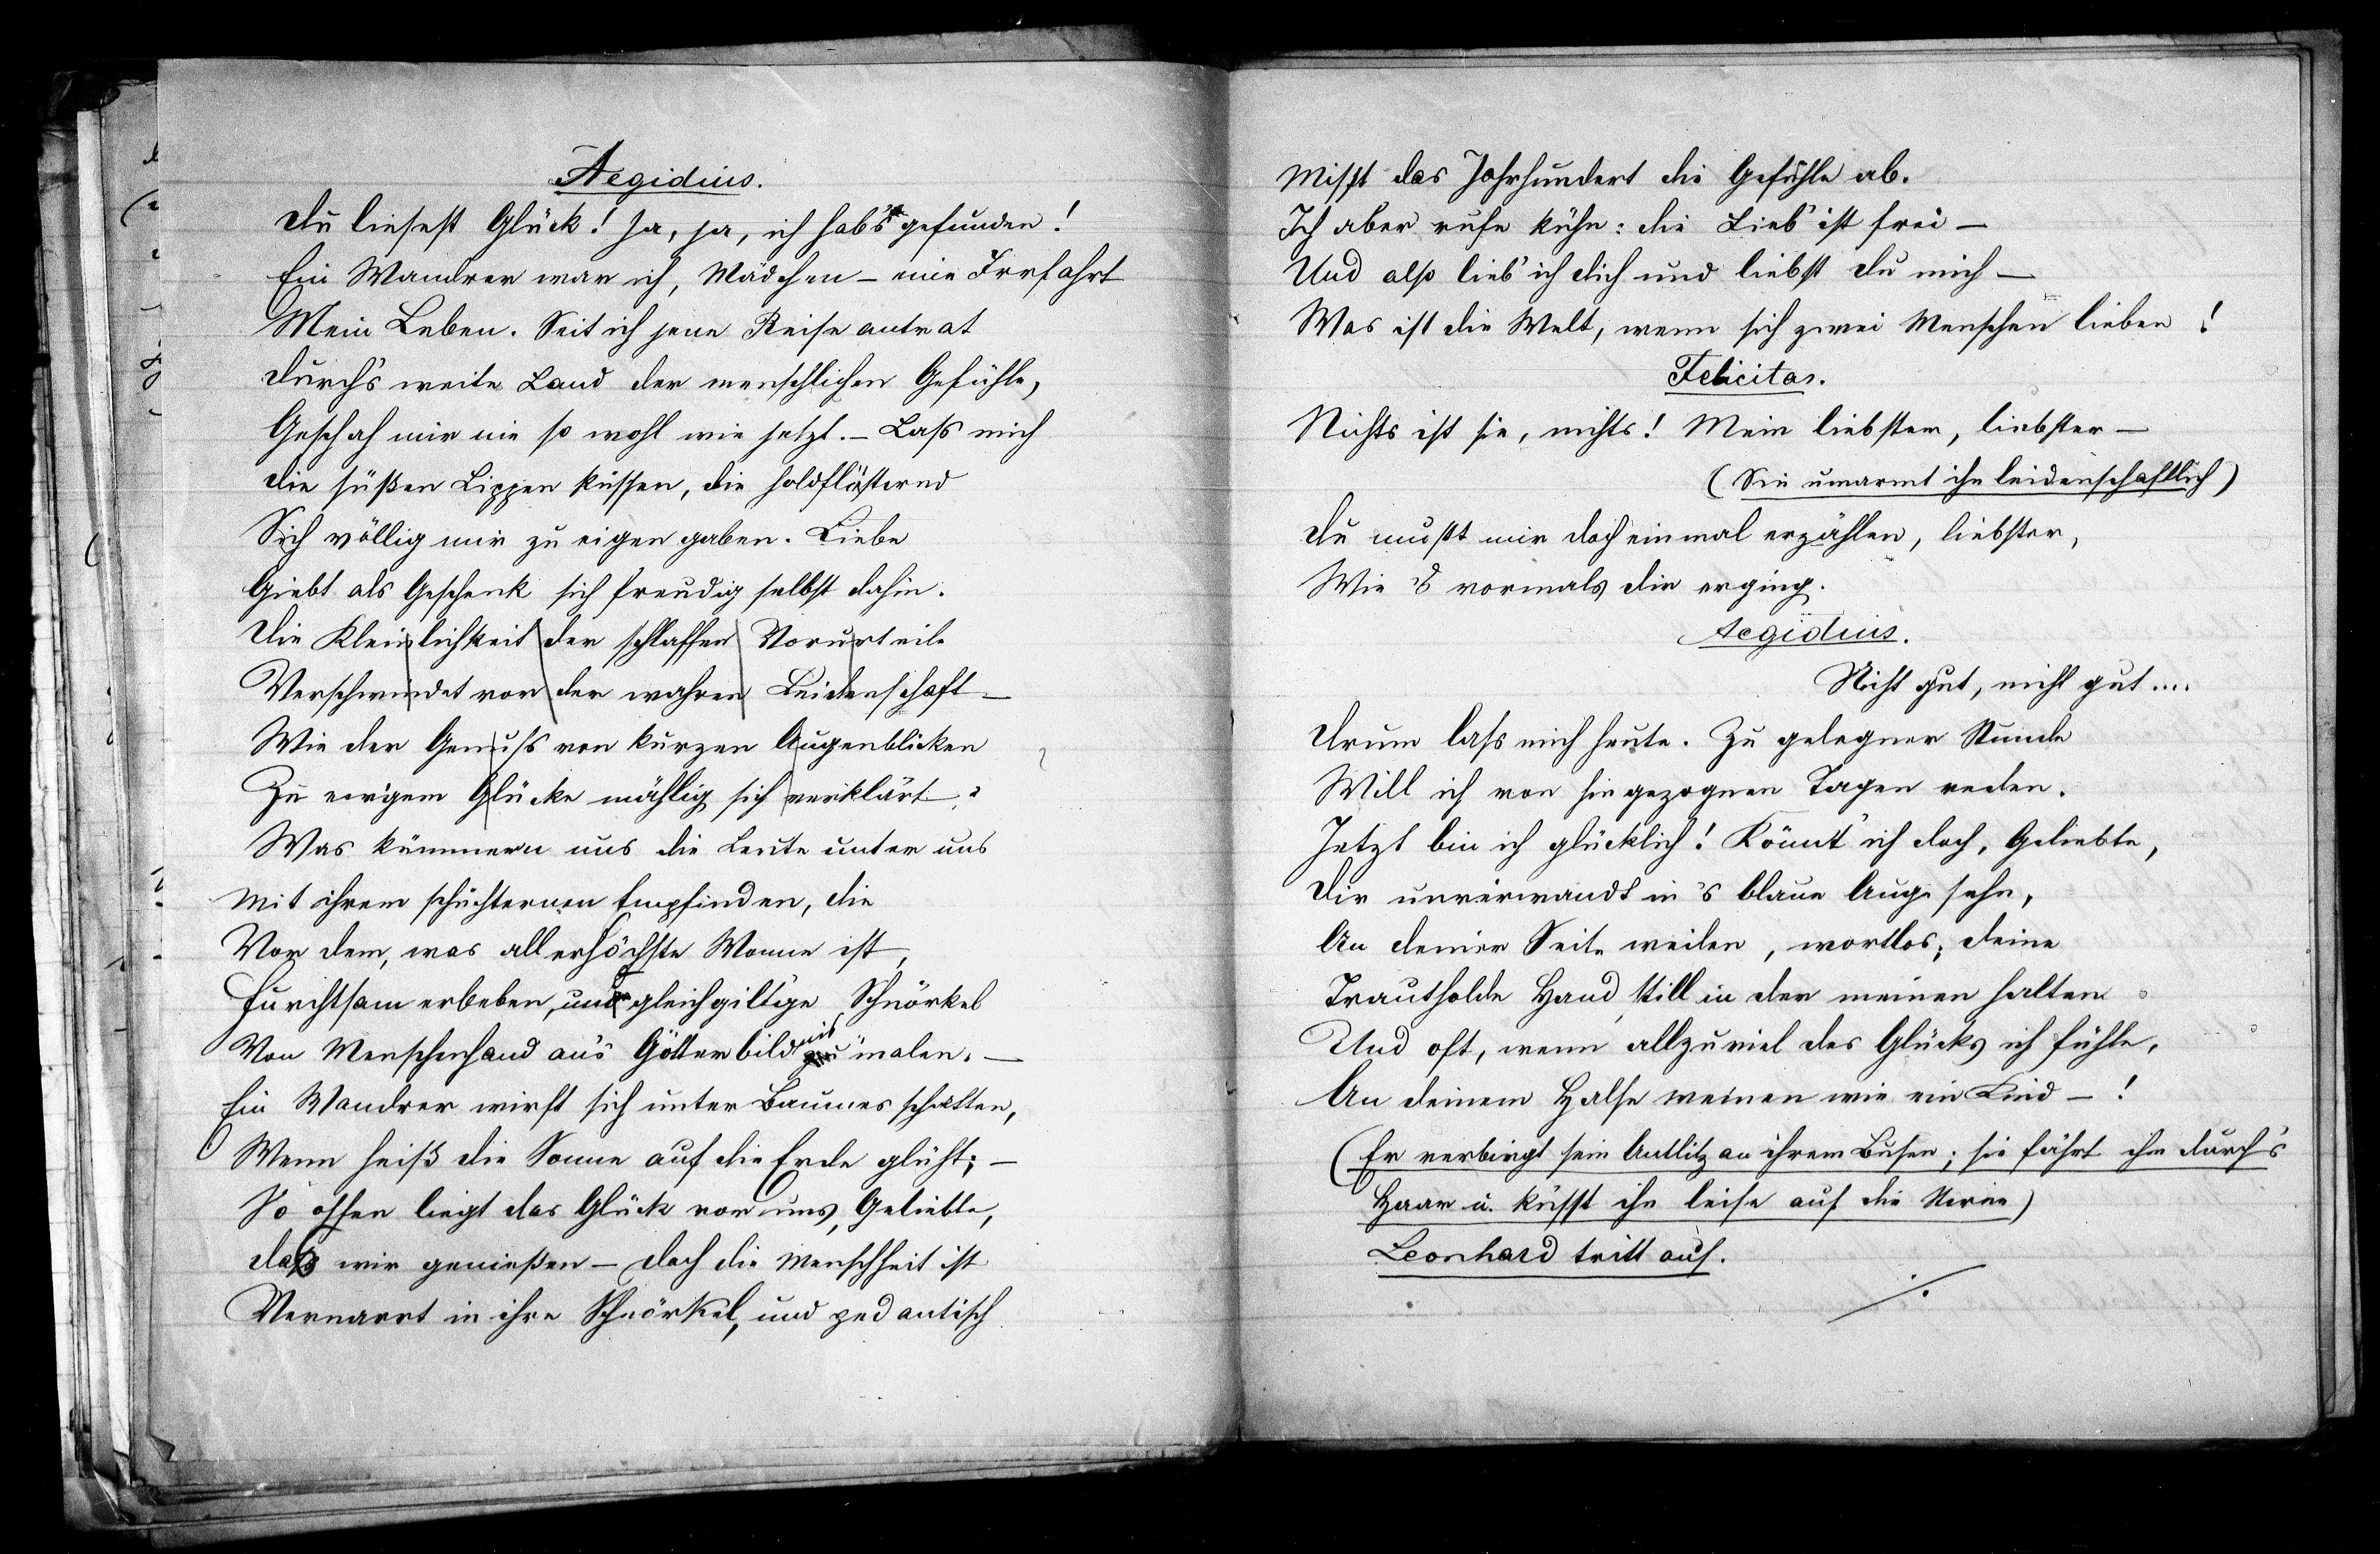 Aegidius.
Du liesest Glück! Ja, ja, ich hab's gefunden!
Ein Wandrer war ich, Mädchen – eine Irrfahrt
Mein Leben. Seit ich jene Reise antrat
Durch's weite Land der menschlichen Gefühle,
Geschah mir nie so wohl wie jetzt. – Lass mich
Die süßen Lippen küssen, die holdflüsternd
Sich völlig mir zu eigen gaben. Liebe
Giebt als Geschenk sich freudig selbst dahin.
Die Kleinlichkeit der schlaffen Vorurteile
Verschwindet vor der wahren Leidenschaft –
Wie der Genuss von kurzen Augenblicken
Zu ew'gem Glücke mählig sich verklärt.
Was kümmern uns die Leute unter uns
Mit ihrem schüchternen Empfinden, die
Vor dem, was allerhöchste Wonne ist,
Furchtsam erbeben, und gleichgiltige Schnörkel
Von Menschenhand an's Götterbild malen. –
Ein Wandrer wirft sich unter Baumes schatten,
Wenn heiß die Sonne auf die Erde glüht; –
So offen liegt das Glück vor uns, Geliebte,
Dass wir genießen – doch die Menschheit ist
Vernarrt in ihre Schnörkel, und pedantisch
Misst das Jahrhundert die Gefühle ab.
Ich aber rufe kühn: die Lieb' ist frei –
Und also lieb' ich dich und liebst du mich –
Was ist die Welt, wenn sich zwei Menschen lieben!
Felicitas.
Nichts ist sie, nichts! Mein liebster, liebster –
(Sie umarmt ihn leidenschaftlich)
Du musst mir doch einmal erzählen, liebster,
Wie's vormals dir erging.
Aegidius.
Nicht gut, nicht gut....
Drum lass mich heute. Zu gelegner Stunde
Will ich von hingezognen Tagen reden.
Jetzt bin ich glücklich! Könnt' ich doch, Geliebte,
Dir unverwandt in's blaue Auge sehn,
An deiner Seite weilen, wortlos; deine
Trautholde Hand still in der meinen halten
Und oft, wenn allzuviel des Glücks ich fühle,
An deinem Halse weinen wie ein Kind – !
(Er verbirgt sein Antlitz an ihrem Busen; sie fährt ihm durch's
Haar u. küsst ihn leise auf die Stirne)
Leonhard tritt auf.